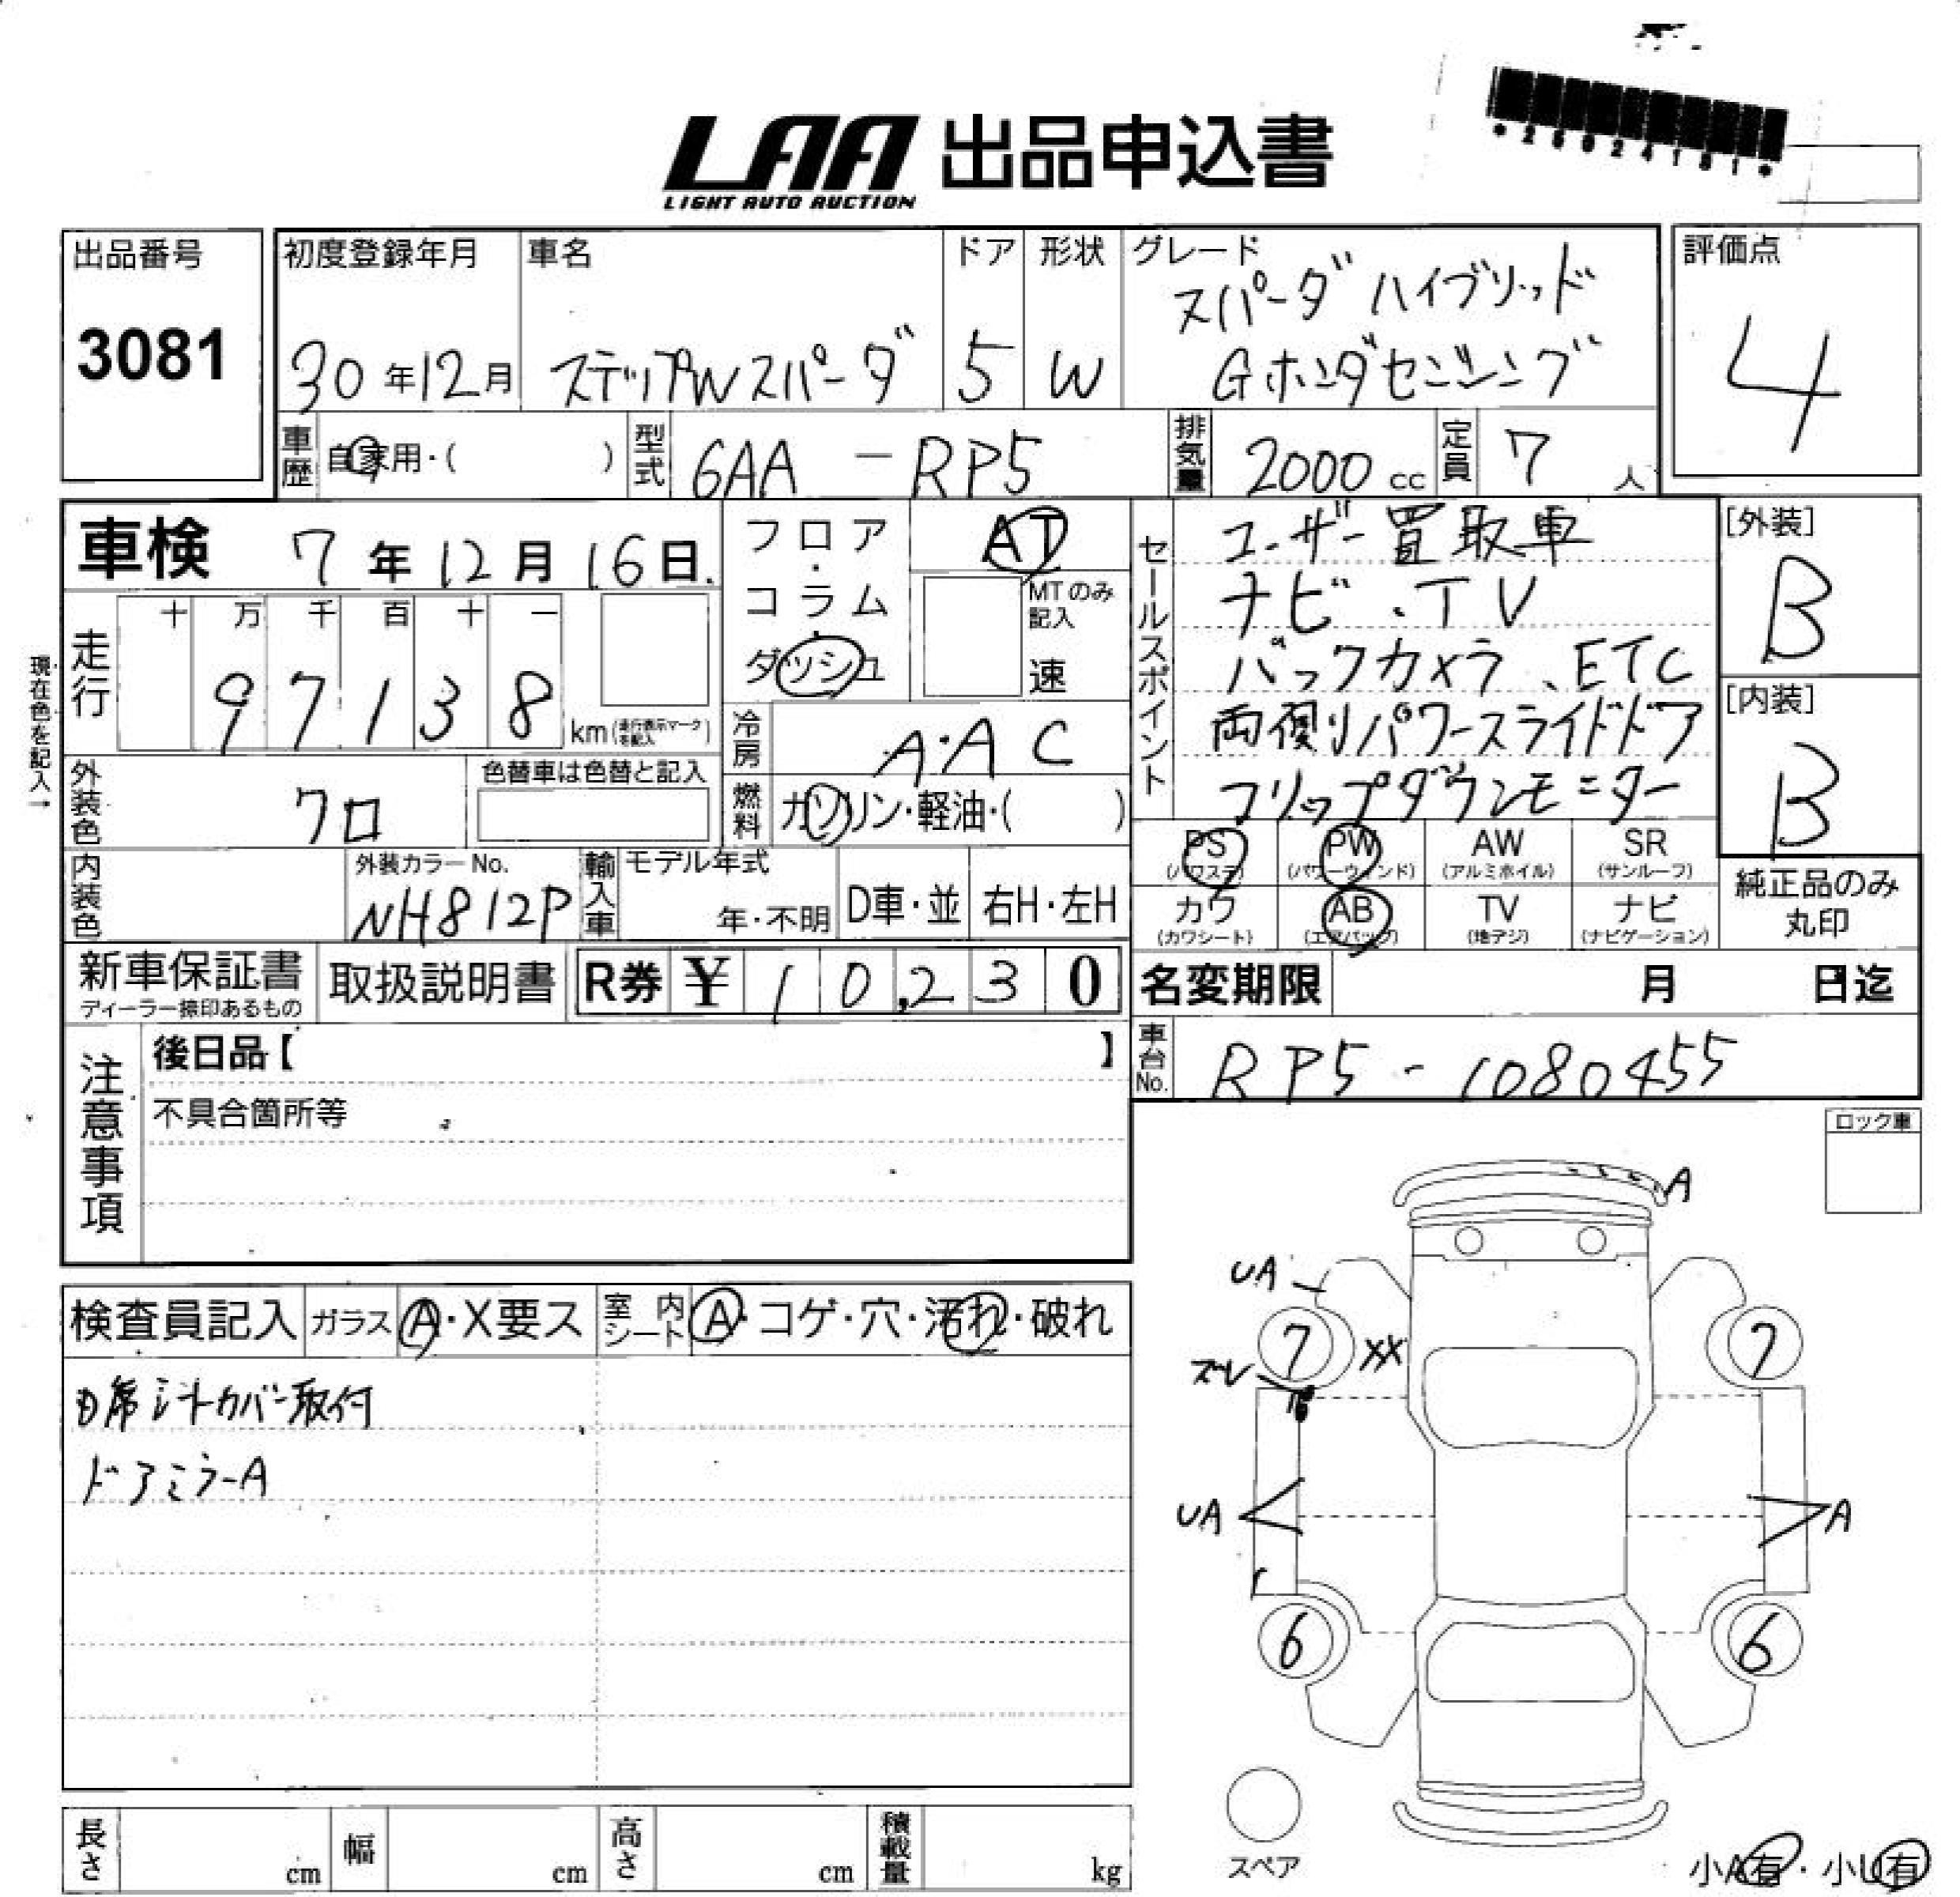 *26024181*
LAA 出品申込書
LIGHT AUTO AUCTION
出品番号
3081
初度登録年月
30年12月
車名
ステップWスパーダ
ドア
5
形状
W
グレード
スパーダ ハイブリッド
Gホンダセンシング
評価点
4
車歴
自家用・( )
型式
6AA-RP5
排気量
2000cc
定員
7人
車検 7年12月16日
フロア・
コラム・
ダッシュ
AT
MTのみ記入
速
走行
十万千百十一
97138
km(走行表示マークを記入)
現在色を記入→
冷房
A.AC
燃料
ガソリン・軽油・( )
外装色
クロ
色替車は色替と記入
内装色
外装カラーNo.
NH812P
輸入車
モデル年式
年・不明
D車・並
右H・左H
セールスポイント
ユーザー買取車
ナビ.TV
バックカメラ、ETC
両側パワースライドドア
フリップダウンモニター
[外装]
B
[内装]
B
PS
(パワステ)
PW
(パワーウィンド)
AW
(アルミホイル)
SR
(サンルーフ)
カワ
(カワシート)
AB
(エアバッグ)
TV
(地デジ)
ナビ
(ナビゲーション)
純正品のみ
丸印
新車保証書
ディーラー捺印あるもの
取扱説明書
R券 ¥10,230
名変期限 月 日迄
車台No.
RP5-1080455
注意事項
後日品【 】
不具合箇所等
ロック車
検査員記入
ガラス
A・X要ス
室内シート
A・コゲ・穴・汚れ・破れ
シートカバー取付
ドアミラーA
A
UA
7
XX
7
ズレ
UA
A
6
6
スペア
小A有・小U有
長さ cm
幅 cm
高さ cm
積載量 kg